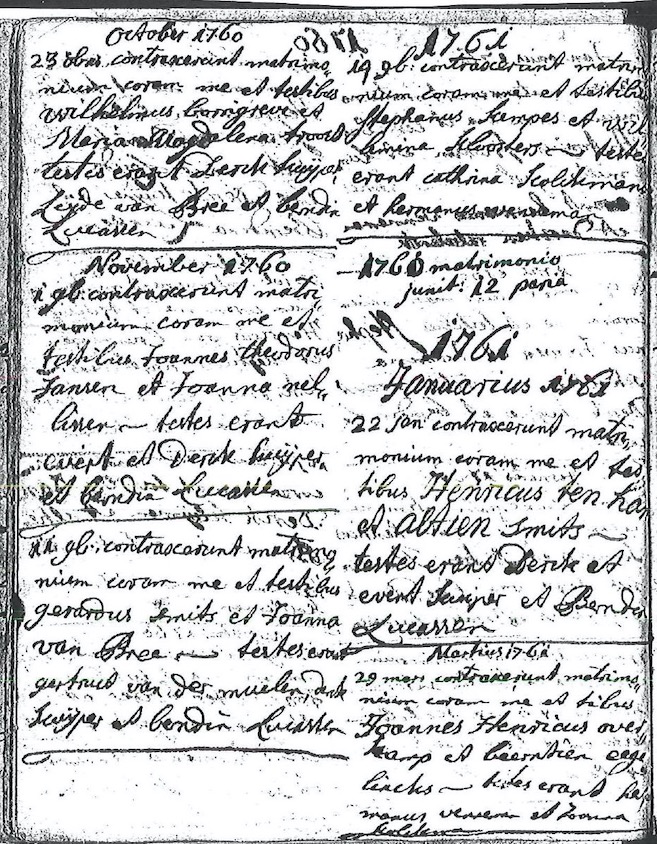 October 1760
23 8bris contraxerunt matrimo
nium coram me et testibus
Wilhelmus
Maria Magdalena
testes erant Derck kuijper
van Bree et bendin
Lucassen
November 1760
1 9b: contraxerunt matri
monium coram me et
testibus Joannes theodorus
Jansen et Joanna nel
lissen testes erant
evert et Derck kuijper
et bendin Lucassen
11 9b: contraxerunt matrimo
nium coram me et testibus
gerardus smits et Joanna
van Bree testes erant
gertrut van der muelen derk
kuijper et bendin Lucassen
1760 1761
19 9b: contraxerunt matri
nium coram me et testibus
Stephanus kampes et wil
lemina testes
erant cathrina
et hermanus
1760 matrimonio
junxit: 12 paria
1761
Januarius 1761
22 Jan contraxerunt matri
monium coram me et tes
tibus Henricus ten
et altien smits
testes erant Derck et
evert kuijper et Bendin
Lucassen
Martius 1761
29 mars contraxerunt matrimo
nium coram me et tibus
Joannes Henricus over
kamp et beerntien
testes erant her
manus et Joanna